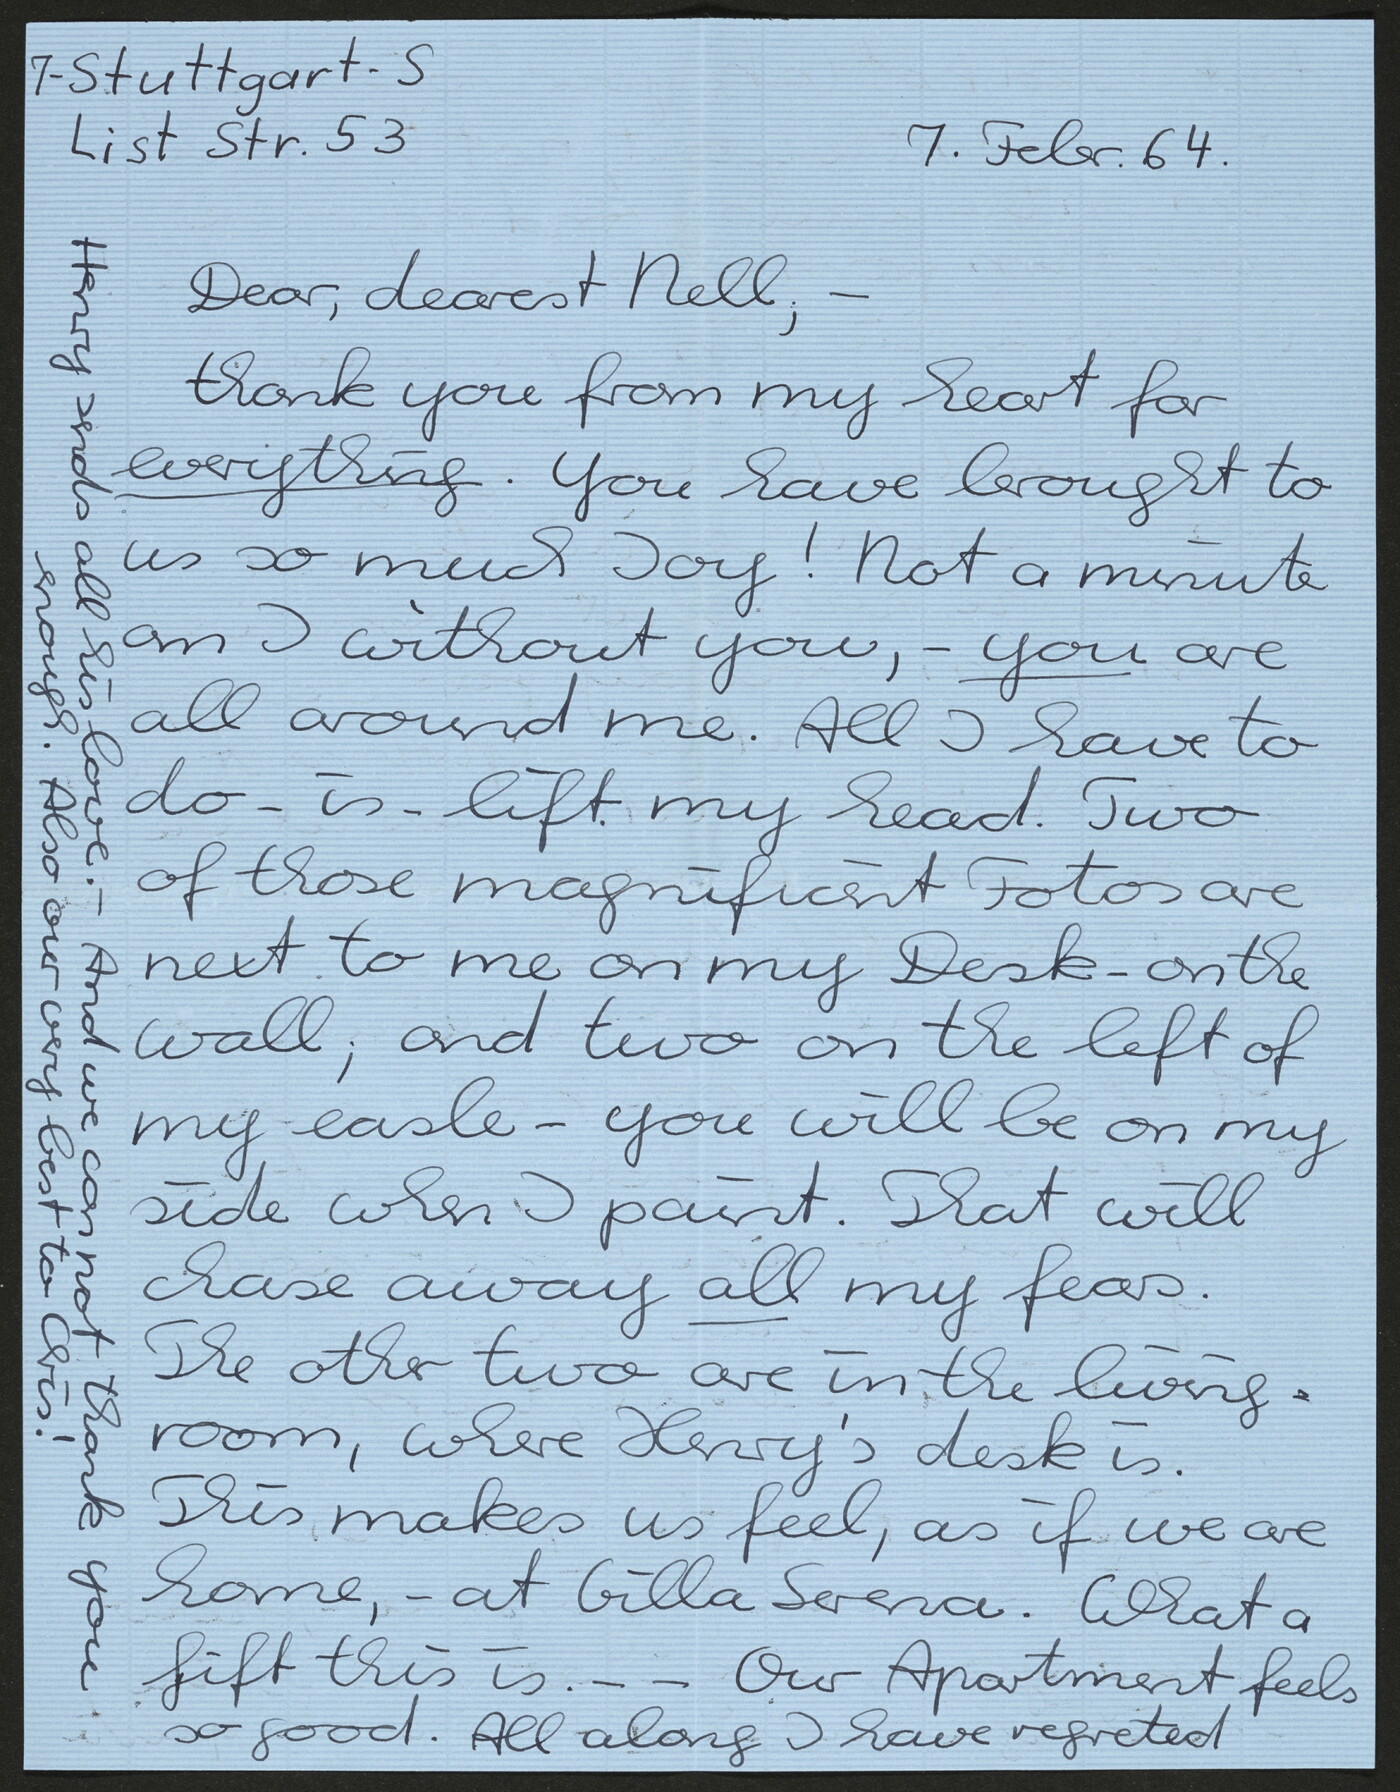 7-Stuttgart-S
List Str. 53
7. Febr. 64.
Dear, dearest Nell, –
thank you from my heart for
everything. You have brought to
us so much Joy! Not a minute
am I without you, – you are
all around me. All I have to
do – is – lift my head. Two
of those magnificent Fotos are
next to me on my Desk – on the
wall, and two on the left of
my easle – you will be on my
side when I paint. That will
chase away all my fears.
The other two are in the living-
room, where Henry's desk is.
This makes us feel, as if we are
home, – at Villa Serena. What a
gift this is. – – Our Apartment feels
so good. All along I have regreted
Henry sends all his love. – And we can not thank you
enough. Also our very best to Chris!